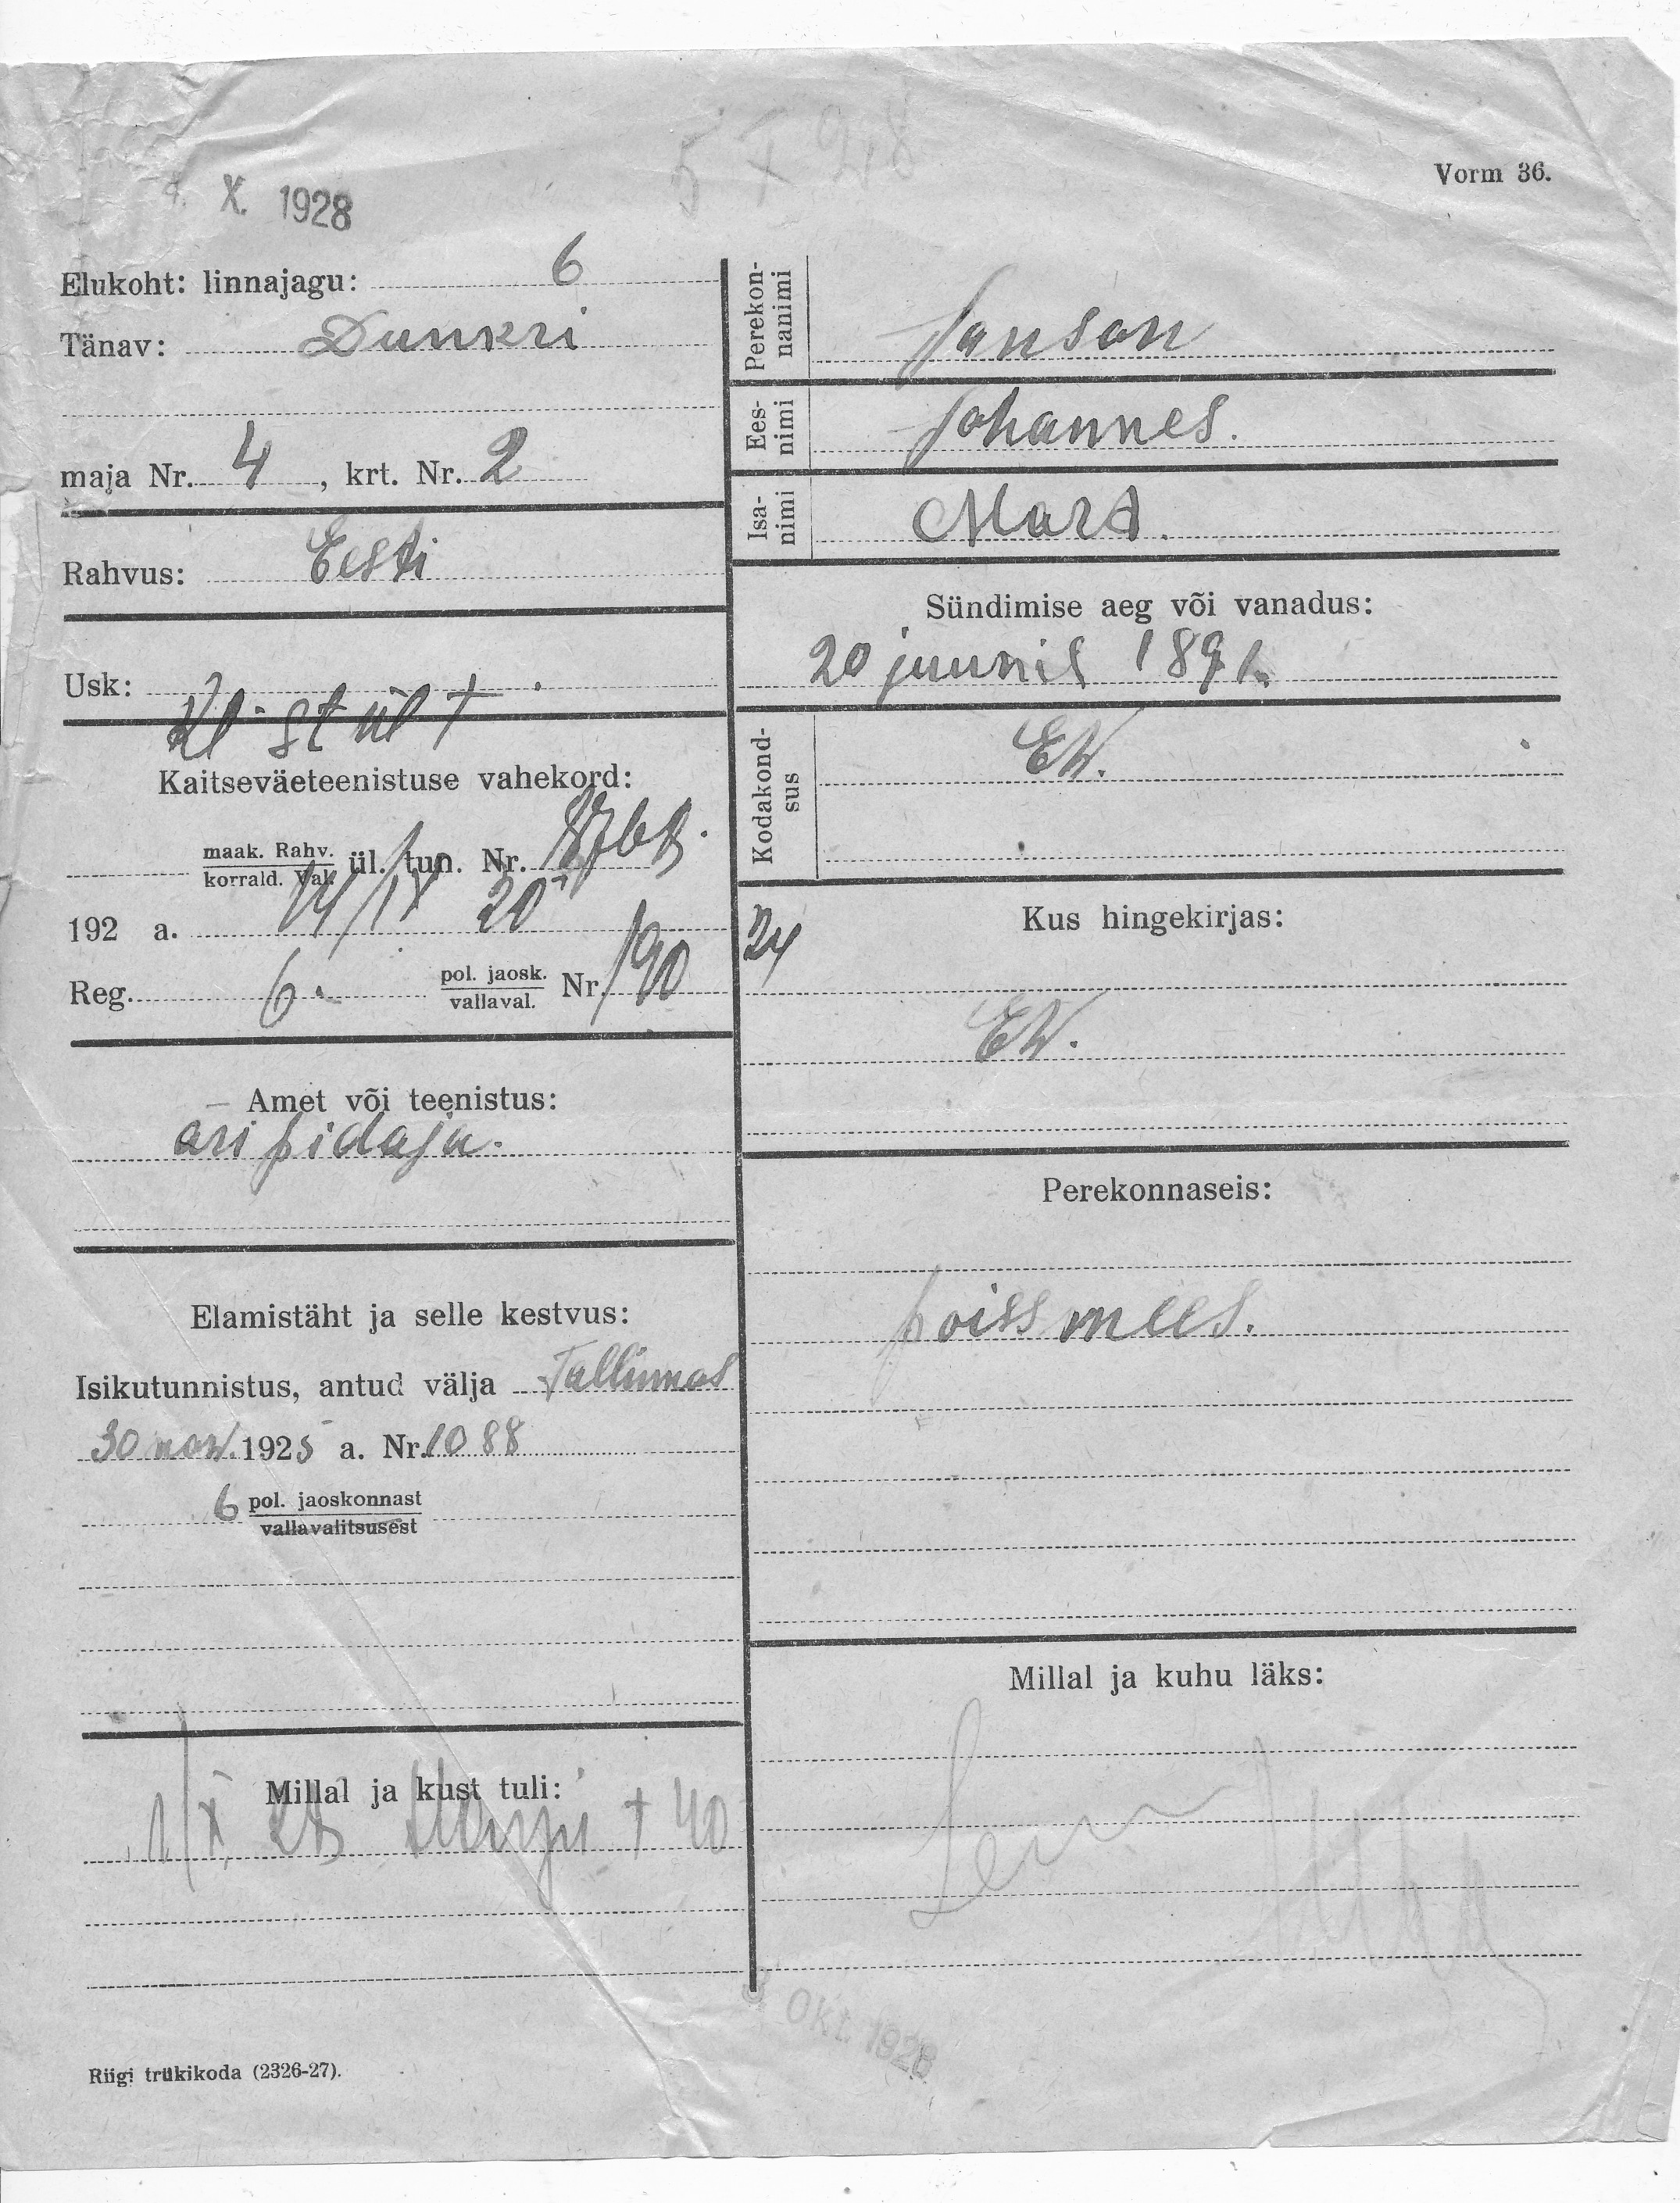 5 X 28
X. 1928
Vorm 36.
Elukoht: linnajagu: 6
Tänav: Dunkri
maja Nr. 4, krt. Nr. 2
Rahvus: Eesti
Usk:
Kaitseväeteenistuse vahekord:
maak. Rahv.
korrald. Val. ül. tun. Nr.
192 a. 14/IX 20
Reg. 6. pol. jaosk.
vallaval. Nr. 190
Amet või teenistus:
äripidaja.
Elamistäht ja selle kestvus:
Isikutunnistus, antud välja Tallinnas
30 nov. 1925 a. Nr. 1088
6 pol. jaoskonnast
vallavalitsusest
Millal ja kust tuli:
1/X 28 Harju t 40
Riigi trükikoda (2326-27).
Perekon-
nanimi Janson
Ees-
nimi Johannes.
Isa-
nimi Mart.
Sündimise aeg või vanadus:
20 juunil 1891.
Kodakond-
sus EW.
Kus hingekirjas:
24
EW.
Perekonnaseis:
poissmees.
Millal ja kuhu läks:
OKT. 1928